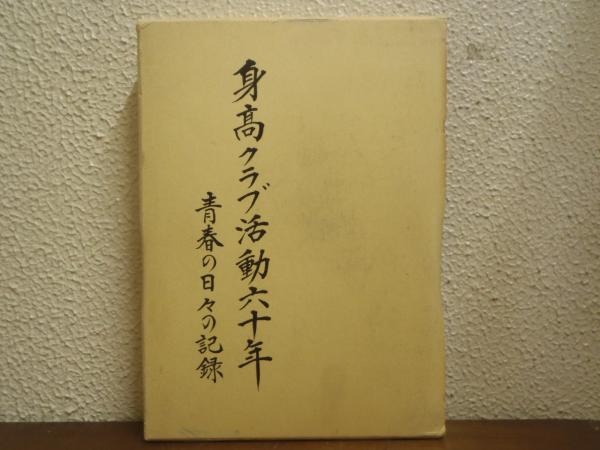 身高クラブ活動六十年
青春の日々の記録